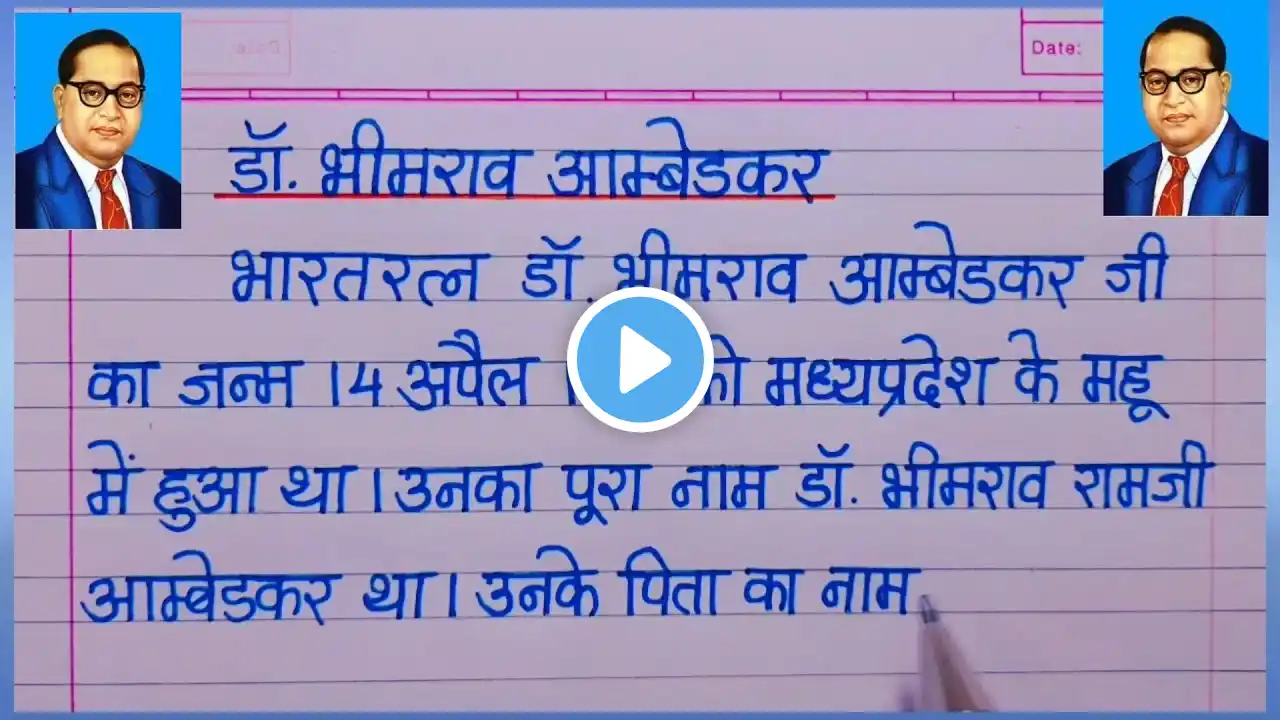 Date:
डॉ. भीमराव आम्बेडकर
भारतरत्न डॉ. भीमराव आम्बेडकर जी
का जन्म 14 अप्रैल को मध्यप्रदेश के महू
में हुआ था। उनका पूरा नाम डॉ. भीमराव रामजी
आम्बेडकर था। उनके पिता का नाम